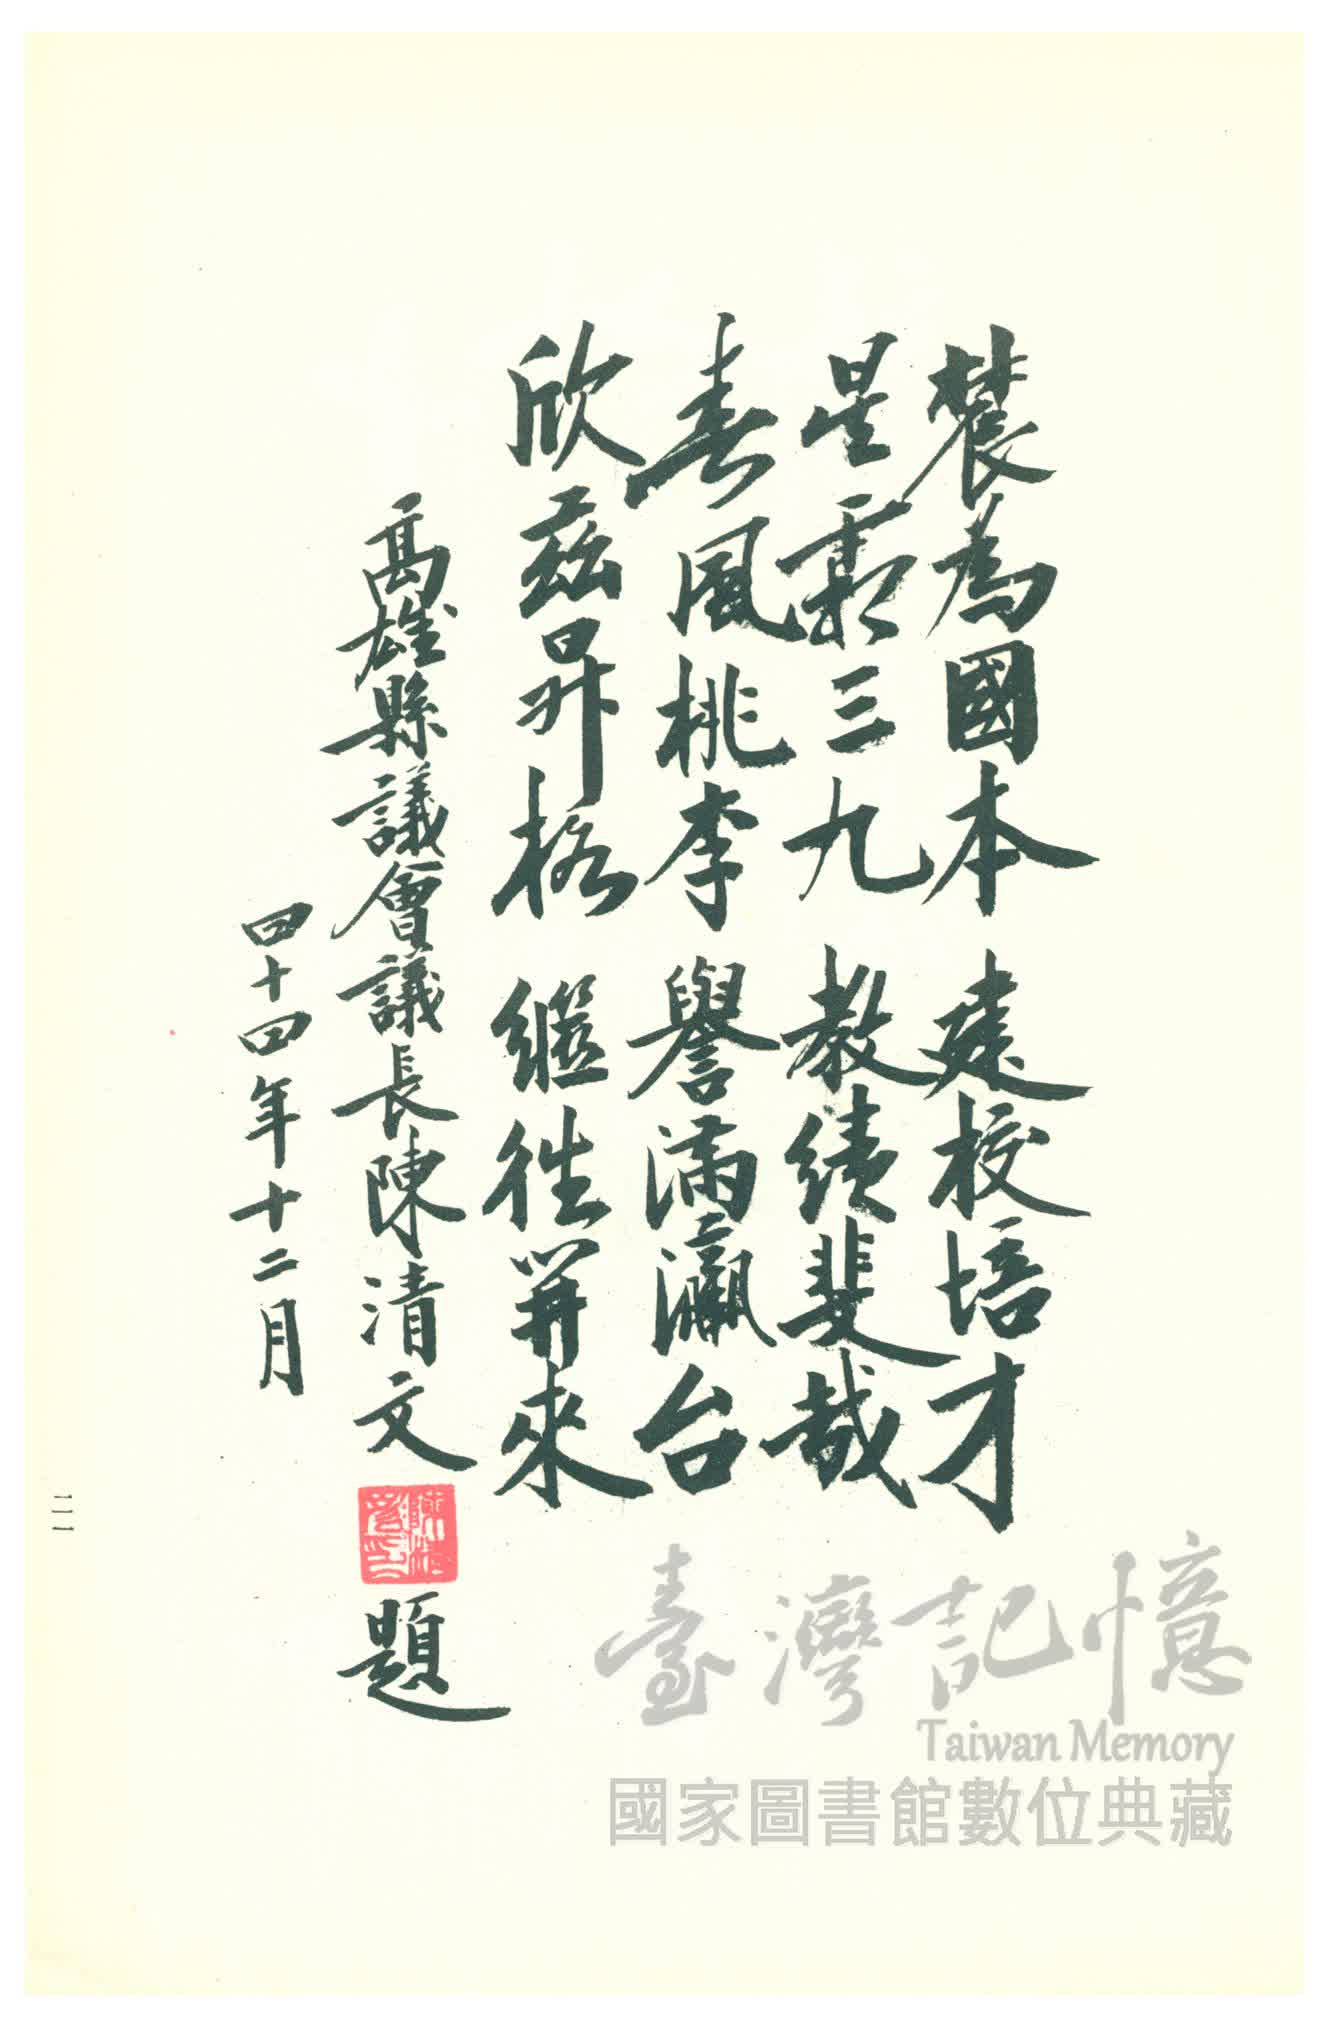 農為國本 建校培才
星霜三九 教績斐哉
春風桃李 譽滿瀛台
欣茲昇格 繼往開來
高雄縣議會議長陳清文
陳清文印
題
四十四年十二月
二一
臺灣記憶
Taiwan Memory
國家圖書館數位典藏